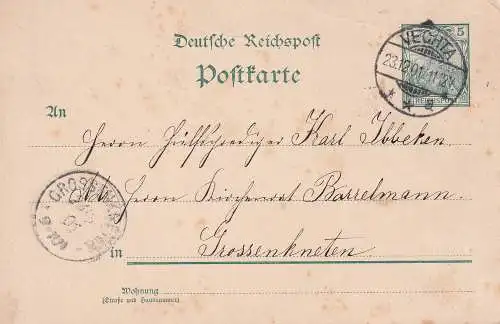 Deutsche Reichspost
Postkarte
VECHTA
5
REICHSPOST
An
Herrn Hülfsprediger Karl Ibbeken
Herrn Kirchenrat Barrelmann.
in Grossenkneten
Wohnung
(Straße und Hausnummer)